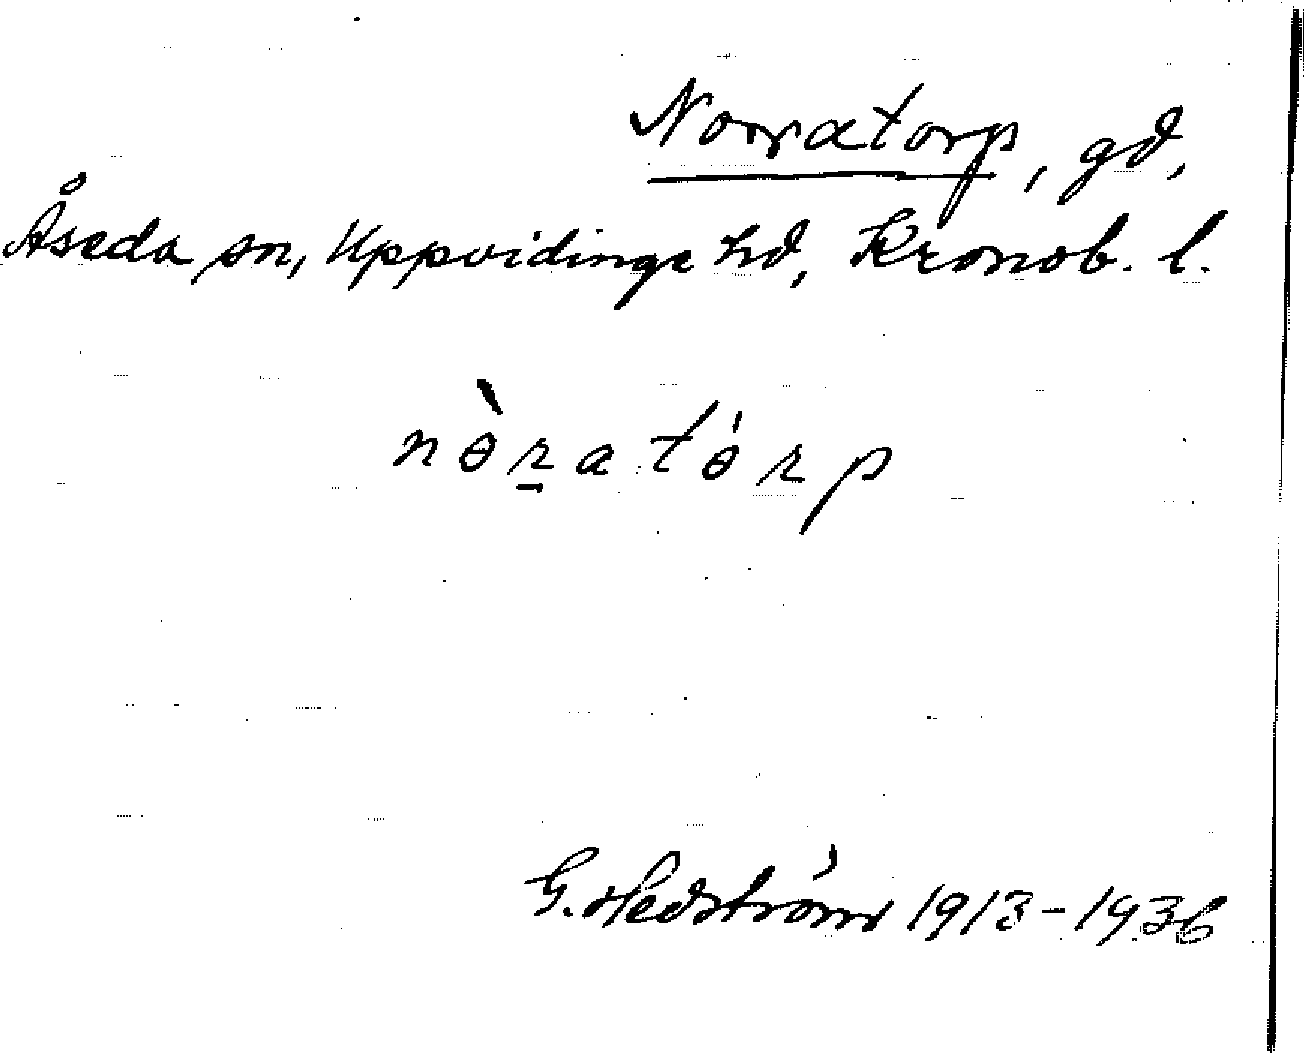 Norratorp, gd,
Åseda sn, Uppvidinge hd, Kronob. l.
nɵ̀r̠atɵ́rp
G. Hedström 1913-1936